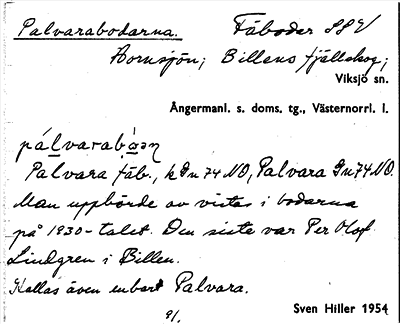 Palvarabodarna. Fäboder SSV
Bornsjön; Billens fjällskog;
Viksjö sn.
Ångermanl. s. doms. tg., Västernorrl. l.
pálvarabὰ̱ən
Palvara fäb., k Gn 74 NO, Palvara Gn 74 NO.
Man upphörde av vistas i bodarna
på 1930-talet. Den siste var Per Olof
Lindgren i Billen.
Kallas även enbart Palvara.
Sven Hiller 1954